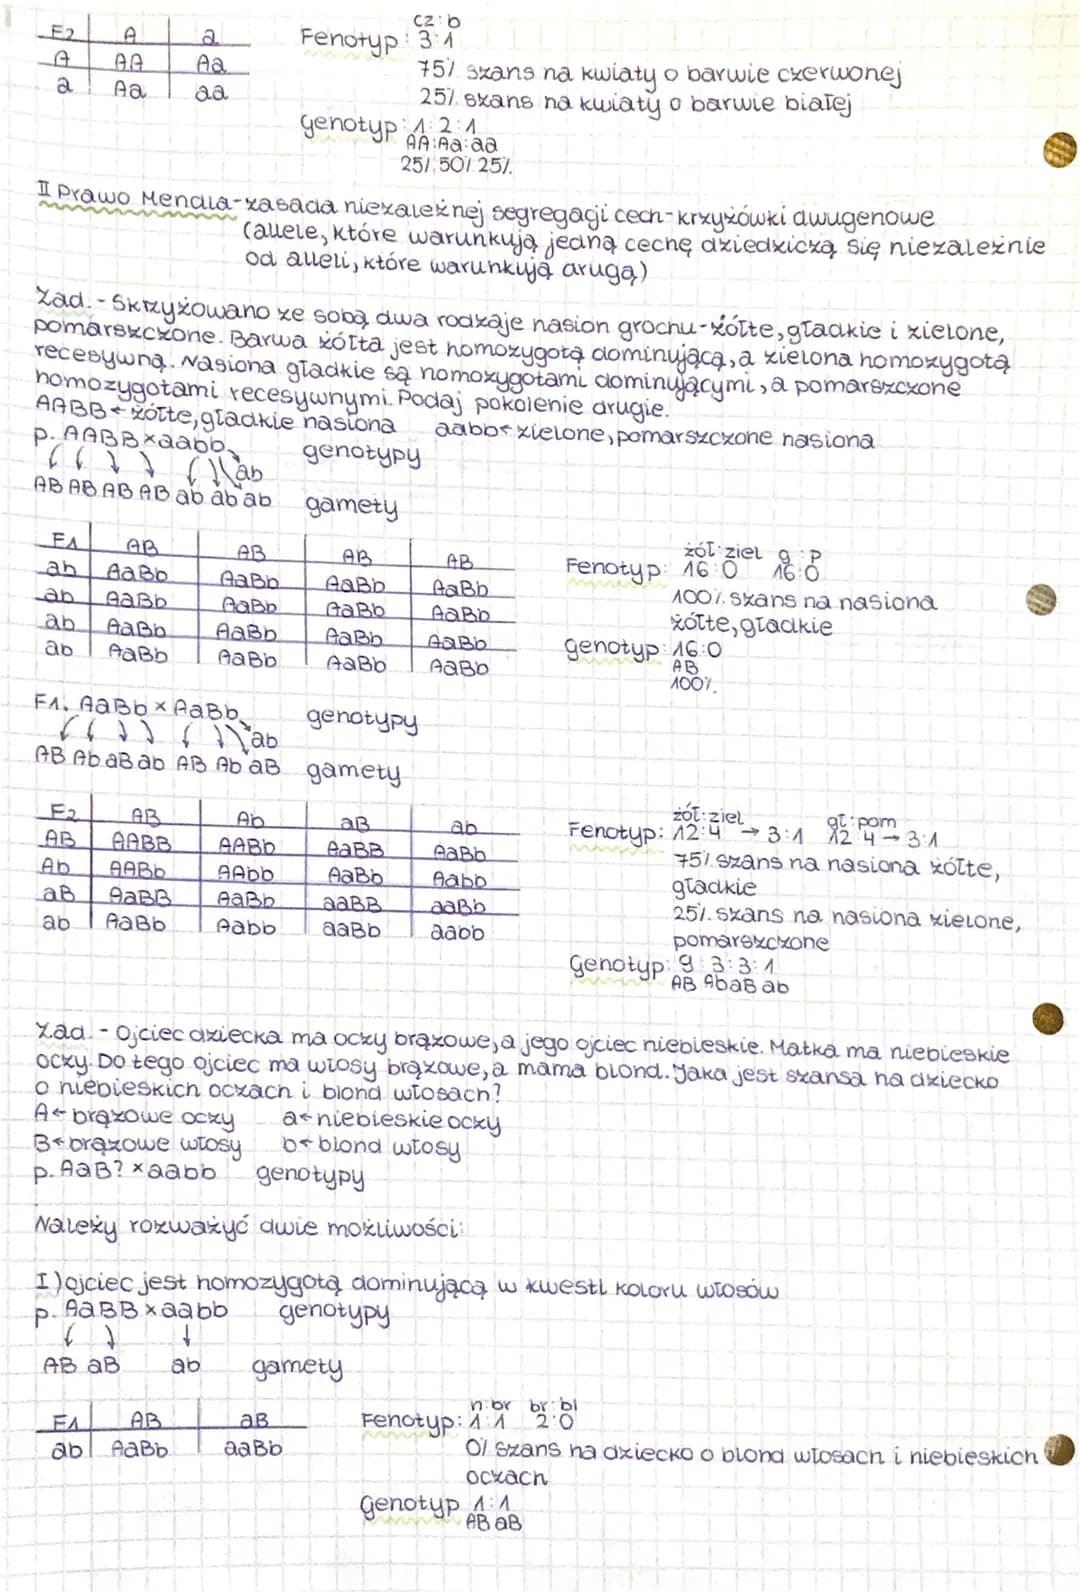 F2 | A | a
A | AA | Aa
a | Aa | aa
cz:b
Fenotyp: 3:1
75% szans na kwiaty o barwie czerwonej
25% szans na kwiaty o barwie białej
genotyp: 1:2:1
AA:Aa:aa
25% 50% 25%
II Prawo Mendla-zasada niezależnej segregacji cech-krzyżówki dwugenowe
(allele, które warunkują jedną cechę dziedziczą się niezależnie
od alleli, które warunkują drugą)
Zad.-Skrzyżowano ze sobą dwa rodzaje nasion grochu-żółte, gładkie i zielone,
pomarszczone. Barwa żółta jest homozygotą dominującą, a zielona homozygotą
recesywną. Nasiona gładkie są homozygotami dominującymi, a pomarszczone
homozygotami recesywnymi. Podaj pokolenie drugie.
AABB ← żółte, gładkie nasiona aabb ← zielone, pomarszczone nasiona
p. AABB x aabb genotypy
ab
AB AB AB AB ab ab ab gamety
F1 | AB | AB | AB | AB
ab | AaBb | AaBb | AaBb | AaBb
ab | AaBb | AaBb | AaBb | AaBb
ab | AaBb | AaBb | AaBb | AaBb
ab | AaBb | AaBb | AaBb | AaBb
żół:ziel g:p
Fenotyp: 16:0 16:0
100% szans na nasiona
żółte, gładkie
genotyp: 16:0
AB
100%
F1. AaBb x AaBb genotypy
ab
AB Ab aB ab AB Ab aB gamety
F2 | AB | Ab | aB | ab
AB | AABB | AABb | AaBB | AaBb
Ab | AABb | AAbb | AaBb | Aabb
aB | AaBB | AaBb | aaBB | aaBb
ab | AaBb | Aabb | aaBb | aabb
żół:ziel gł:pom
Fenotyp: 12:4 → 3:1 12:4 → 3:1
75% szans na nasiona żółte,
gładkie
25% szans na nasiona zielone,
pomarszczone
Genotyp: 9:3:3:1
AB Ab aB ab
Zad.-Ojciec dziecka ma oczy brązowe, a jego ojciec niebieskie. Matka ma niebieskie
oczy. Do tego ojciec ma włosy brązowe, a mama blond. Jaka jest szansa na dziecko
o niebieskich oczach i blond włosach?
A ← brązowe oczy a ← niebieskie oczy
B ← brązowe włosy b ← blond włosy
p. AaB? x aabb genotypy
Należy rozważyć dwie możliwości:
I) ojciec jest homozygotą dominującą w kwesti koloru włosów
p. AaBB x aabb genotypy
AB aB ab gamety
F1 | AB | aB
ab | AaBb | aaBb
n:br br:bl
Fenotyp: 1:1 2:0
0% szans na dziecko o blond włosach i niebieskich
oczach
Genotyp 1:1
AB aB